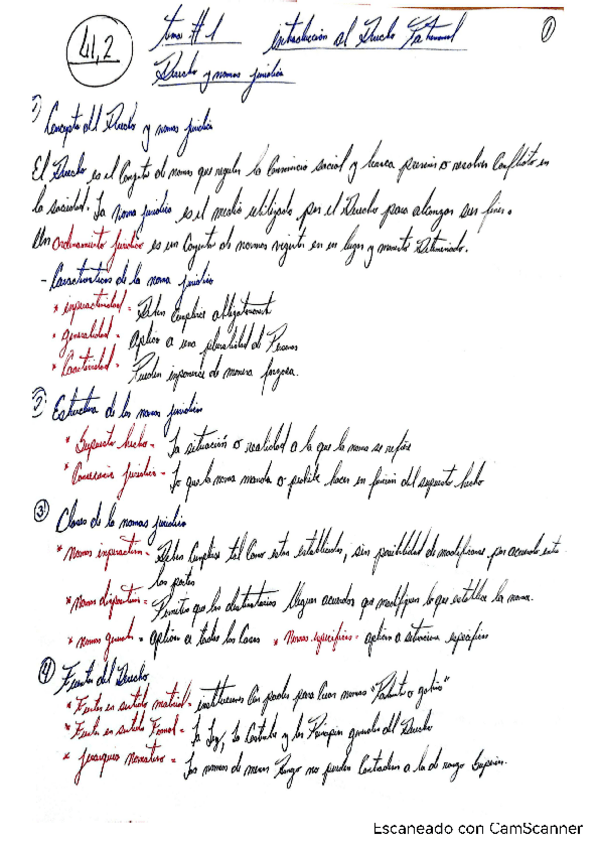 41,2
Tema #1 introducción al Derecho Patrimonial
①
Derecho y normas jurídicas
1) Concepto del Derecho y normas jurídicas
El Derecho es el Conjunto de normas que regulan la Convivencia social y busca prevenir o resolver Conflictos en
la sociedad. La norma jurídica es el medio utilizado por el Derecho para alcanzar sus fines.
Un Ordenamiento Jurídico es un Conjunto de normas vigentes en un lugar y momento Determinado.
- Características de la norma jurídica
* imperatividad = Deben Cumplirse obligatoriamente
* generalidad = aplica a una pluralidad de Personas
* Coactividad = Pueden imponerse de manera forzosa.
2) Estructura de las normas jurídicas
* Supuesto hecho = La situación o realidad a la que la norma se refiere
* Consecuencia jurídica = Lo que la norma manda o prohíbe hacer en función del supuesto hecho
③ Clases de la normas jurídicas
* Normas imperativas = Deben Cumplirse tal Como están establecidas, sin posibilidad de modificarse por acuerdo entre
las partes
* Normas dispositivas = Permiten que los destinatarios lleguen acuerdos que modifiquen lo que establece la norma.
* normas generales = aplican a todos los Casos * Normas específicas = aplican a situaciones específicas
④ Fuentes del Derecho
* Fuentes en sentido material = instituciones Con poder para Crear normas "Parlamento o gobierno"
* Fuentes en sentido Formal = La Ley, La Costumbre y los Principios generales del Derecho
* jerarquía normativa = Las normas de menor Rango no pueden Contradecir a la de rango Superior.
Escaneado con CamScanner